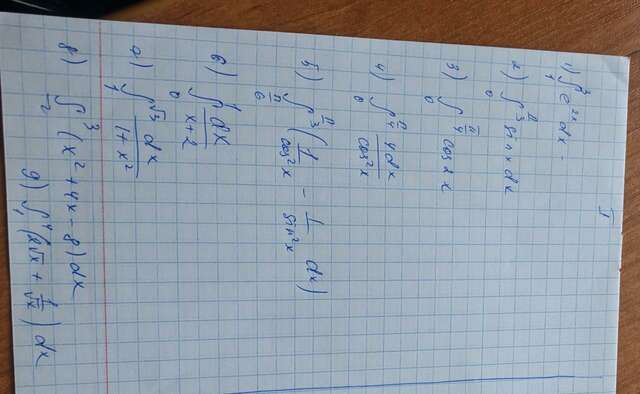 I
1) ∫₁³ e²ˣ dx =
2) ∫₀^(π/3) sin x dx
3) ∫₀^(π/4) cos 2x
4) ∫₀^(π/4) 4dx/cos²x
5) ∫_(π/6)^(π/3) (1/cos²x - 1/sin²x dx)
6) ∫₀¹ dx/(x+2)
a) ∫₁^√3 dx/(1+x²)
8) ∫₋₂³ (x² + 4x - 8) dx
9) ∫₁⁴ (2√x + 1/√x) dx